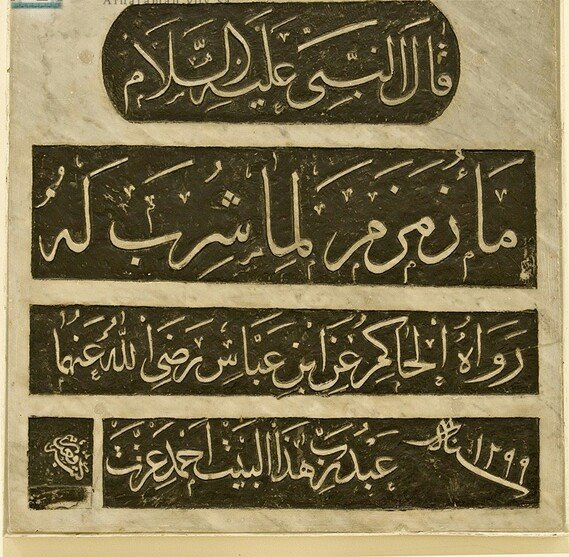 قال النبي عليه السلام
مَاءُ زَمْزَمَ لِمَا شُرِبَ لَهُ
رَوَاهُ الحاكِمُ عَنِ ابْنِ عَبَّاسٍ رَضِيَ اللهُ عَنْهُمَا
عَبْدُ رَبِّ هَذَا البَيْتِ أَحْمَد عِزَّت
سنة ١٢٩٩